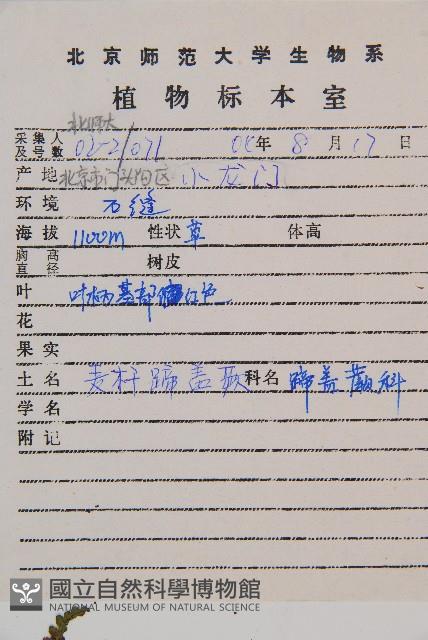 北京师范大学生物系
植物标本室
北师大
采集人及号数 02-2/071 04年 8月 17日
产地 北京市门头沟区 小龙门
环境 石缝
海拔 1100m 性状 草 体高
胸高直径 树皮
叶 叶柄基部 红色
花
果实
土名 麦杆蹄盖蕨 科名 蹄盖蕨科
学名
附记
國立自然科學博物館
NATIONAL MUSEUM OF NATURAL SCIENCE